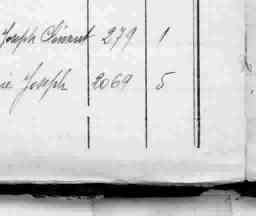 Joseph 279 1
ie Joseph 2069 5